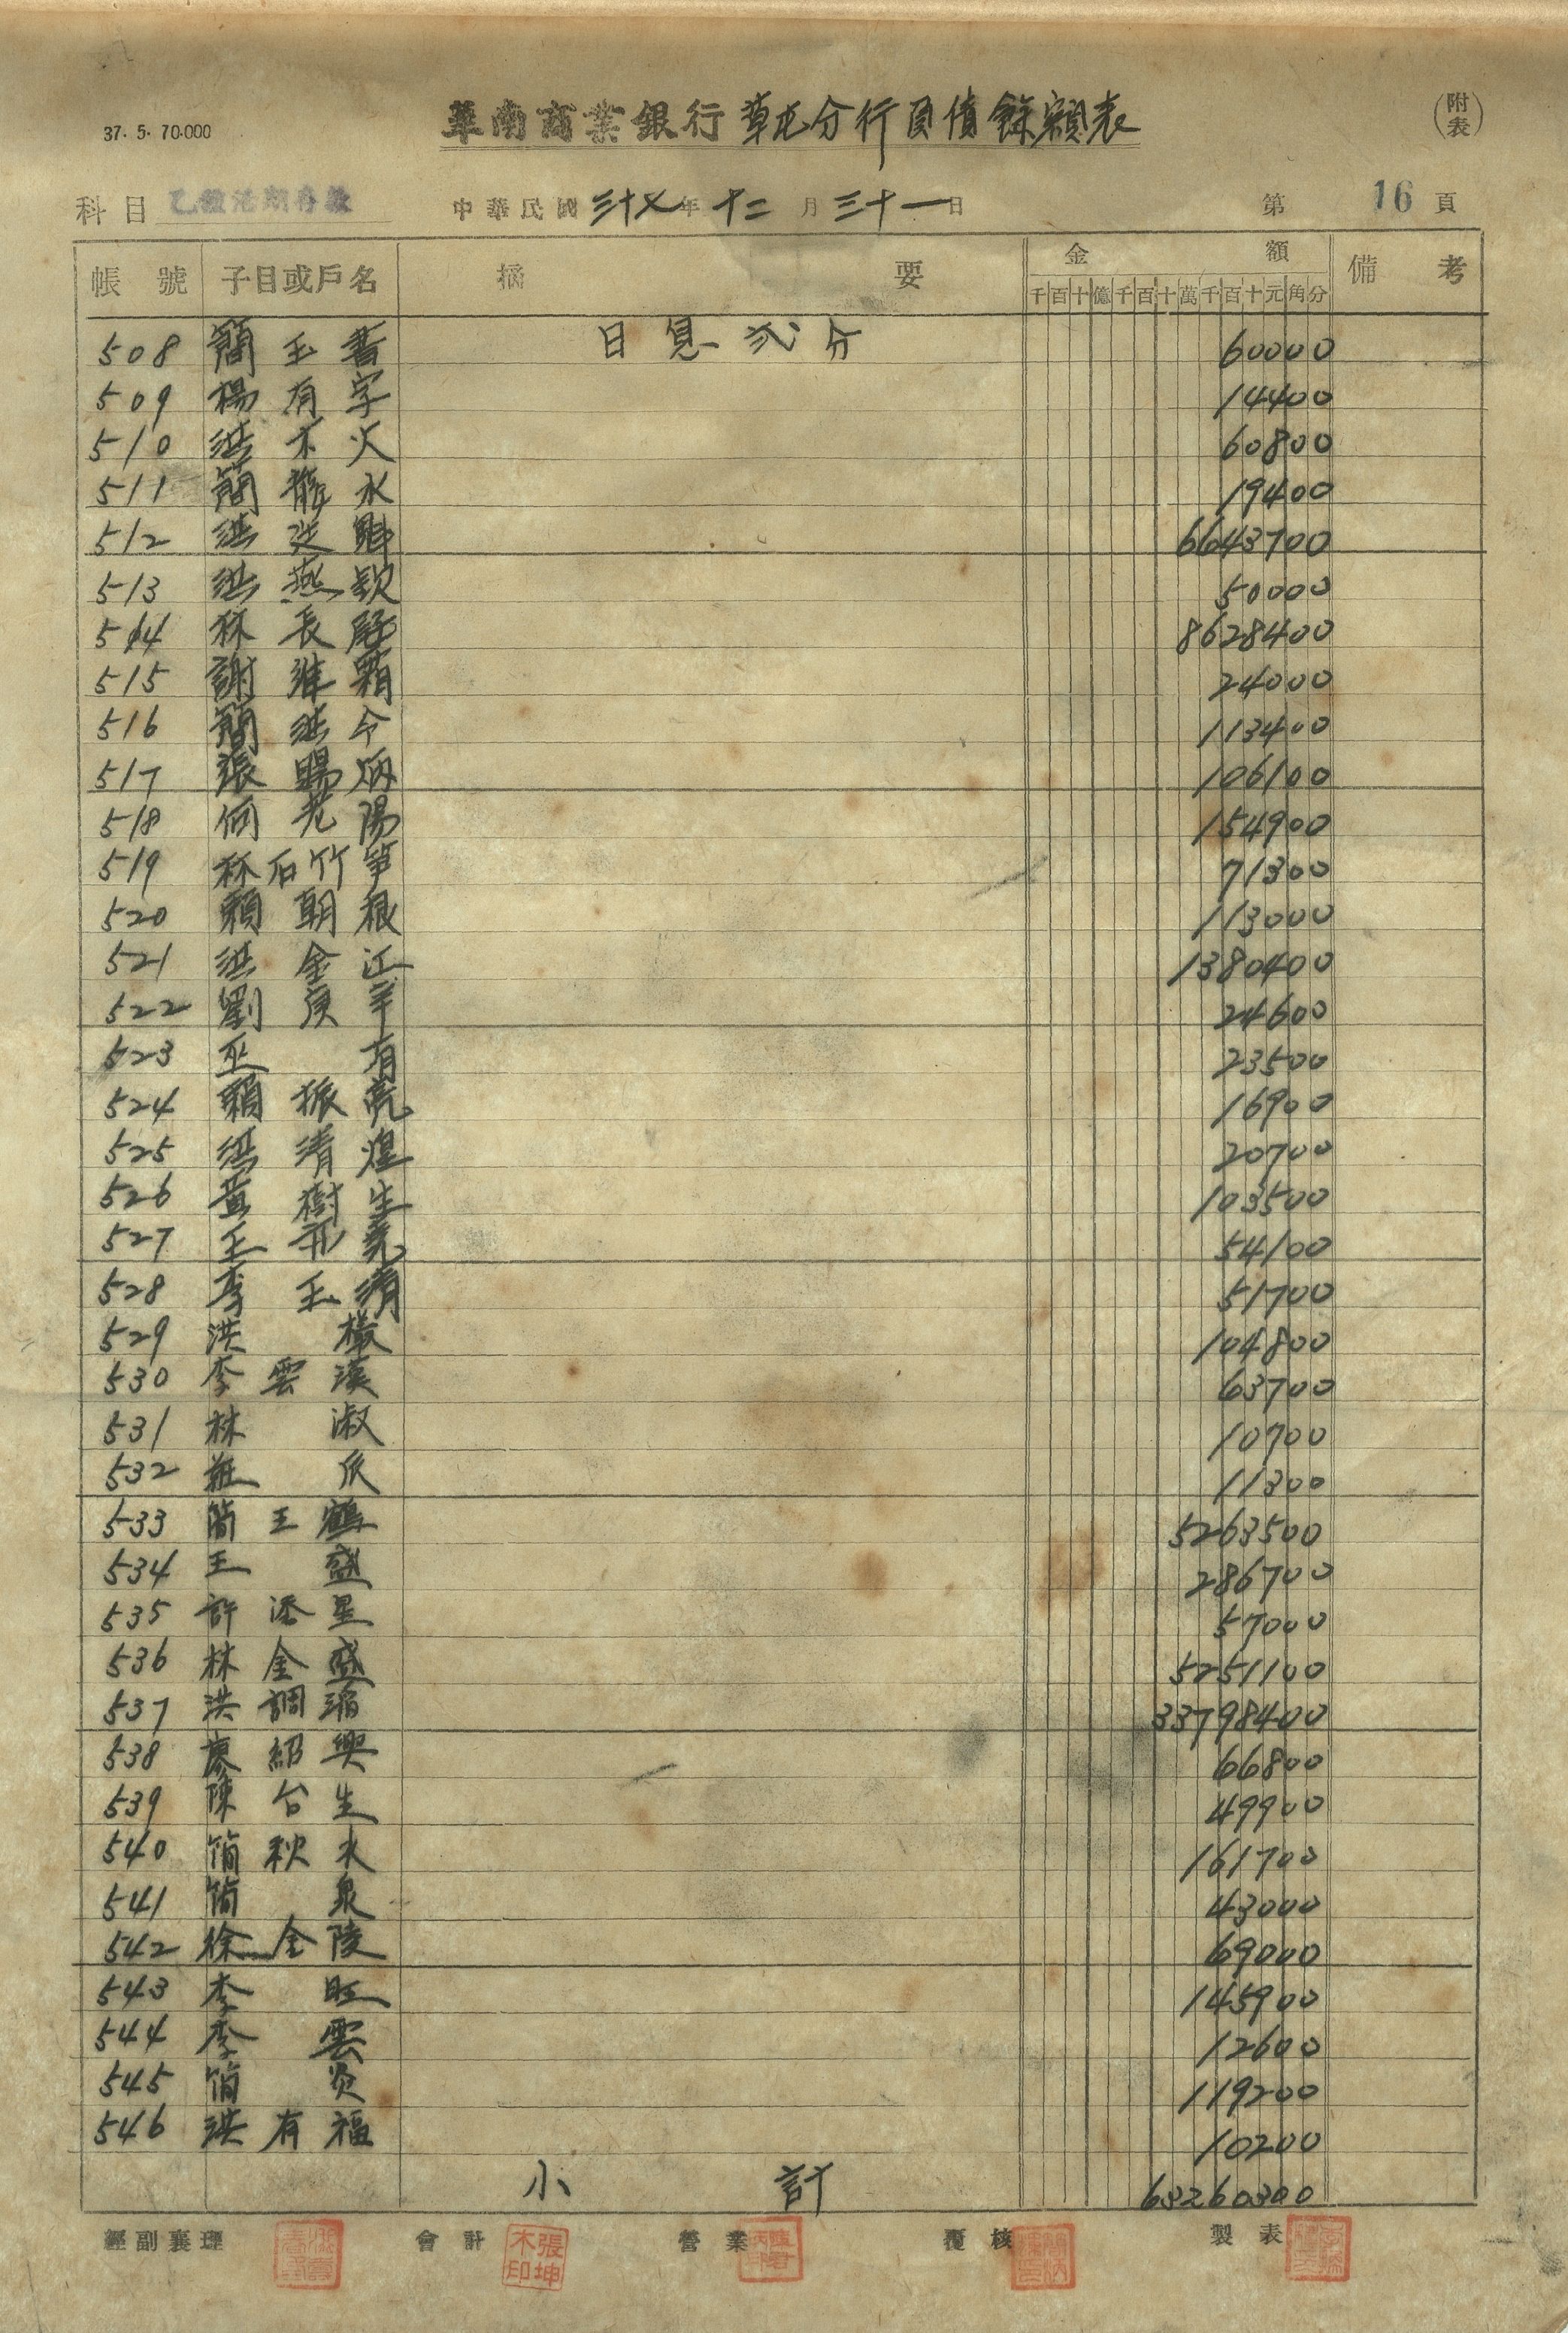 37. 5. 70.000
華南商業銀行草屯分行負債餘額表
(附表)
科目 乙種活期存款 中華民國三十七年十二月三十一日 第16頁
帳號 子目或戶名 摘要 金額 備考
千百十億千百十萬千百十元角分
508 簡玉書 日息弍分 60000
509 楊有字 14400
510 洪木火 60800
511 簡 水 19400
512 洪廷魁 6643700
513 洪燕欽 50000
514 林長 8628400
515 謝 霜 24000
516 簡洪今 113400
517 張賜炳 106100
518 何老陽 154900
519 林石竹筍 71300
520 賴朝根 113000
521 洪金江 1380400
522 劉庚羊 24600
523 巫有 23500
524 賴振亮 16900
525 洪清煌 20700
526 黃樹生 103500
527 王 54100
528 李玉清 51700
529 洪 104800
530 李雲漢 63700
531 林淑 10700
532 莊 11300
533 簡王鶴 5263500
534 王盛 286700
535 許添星 57000
536 林金盛 5251100
537 洪調 33798400
538 廖紹興 66800
539 陳台生 49900
540 簡秋水 161700
541 簡泉 43000
542 徐金陵 69000
543 李旺 145900
544 李雲 12600
545 簡炎 119200
546 洪有福 10200
小計 63260300
經副襄理 會計 張坤木印 營業 覆核 製表